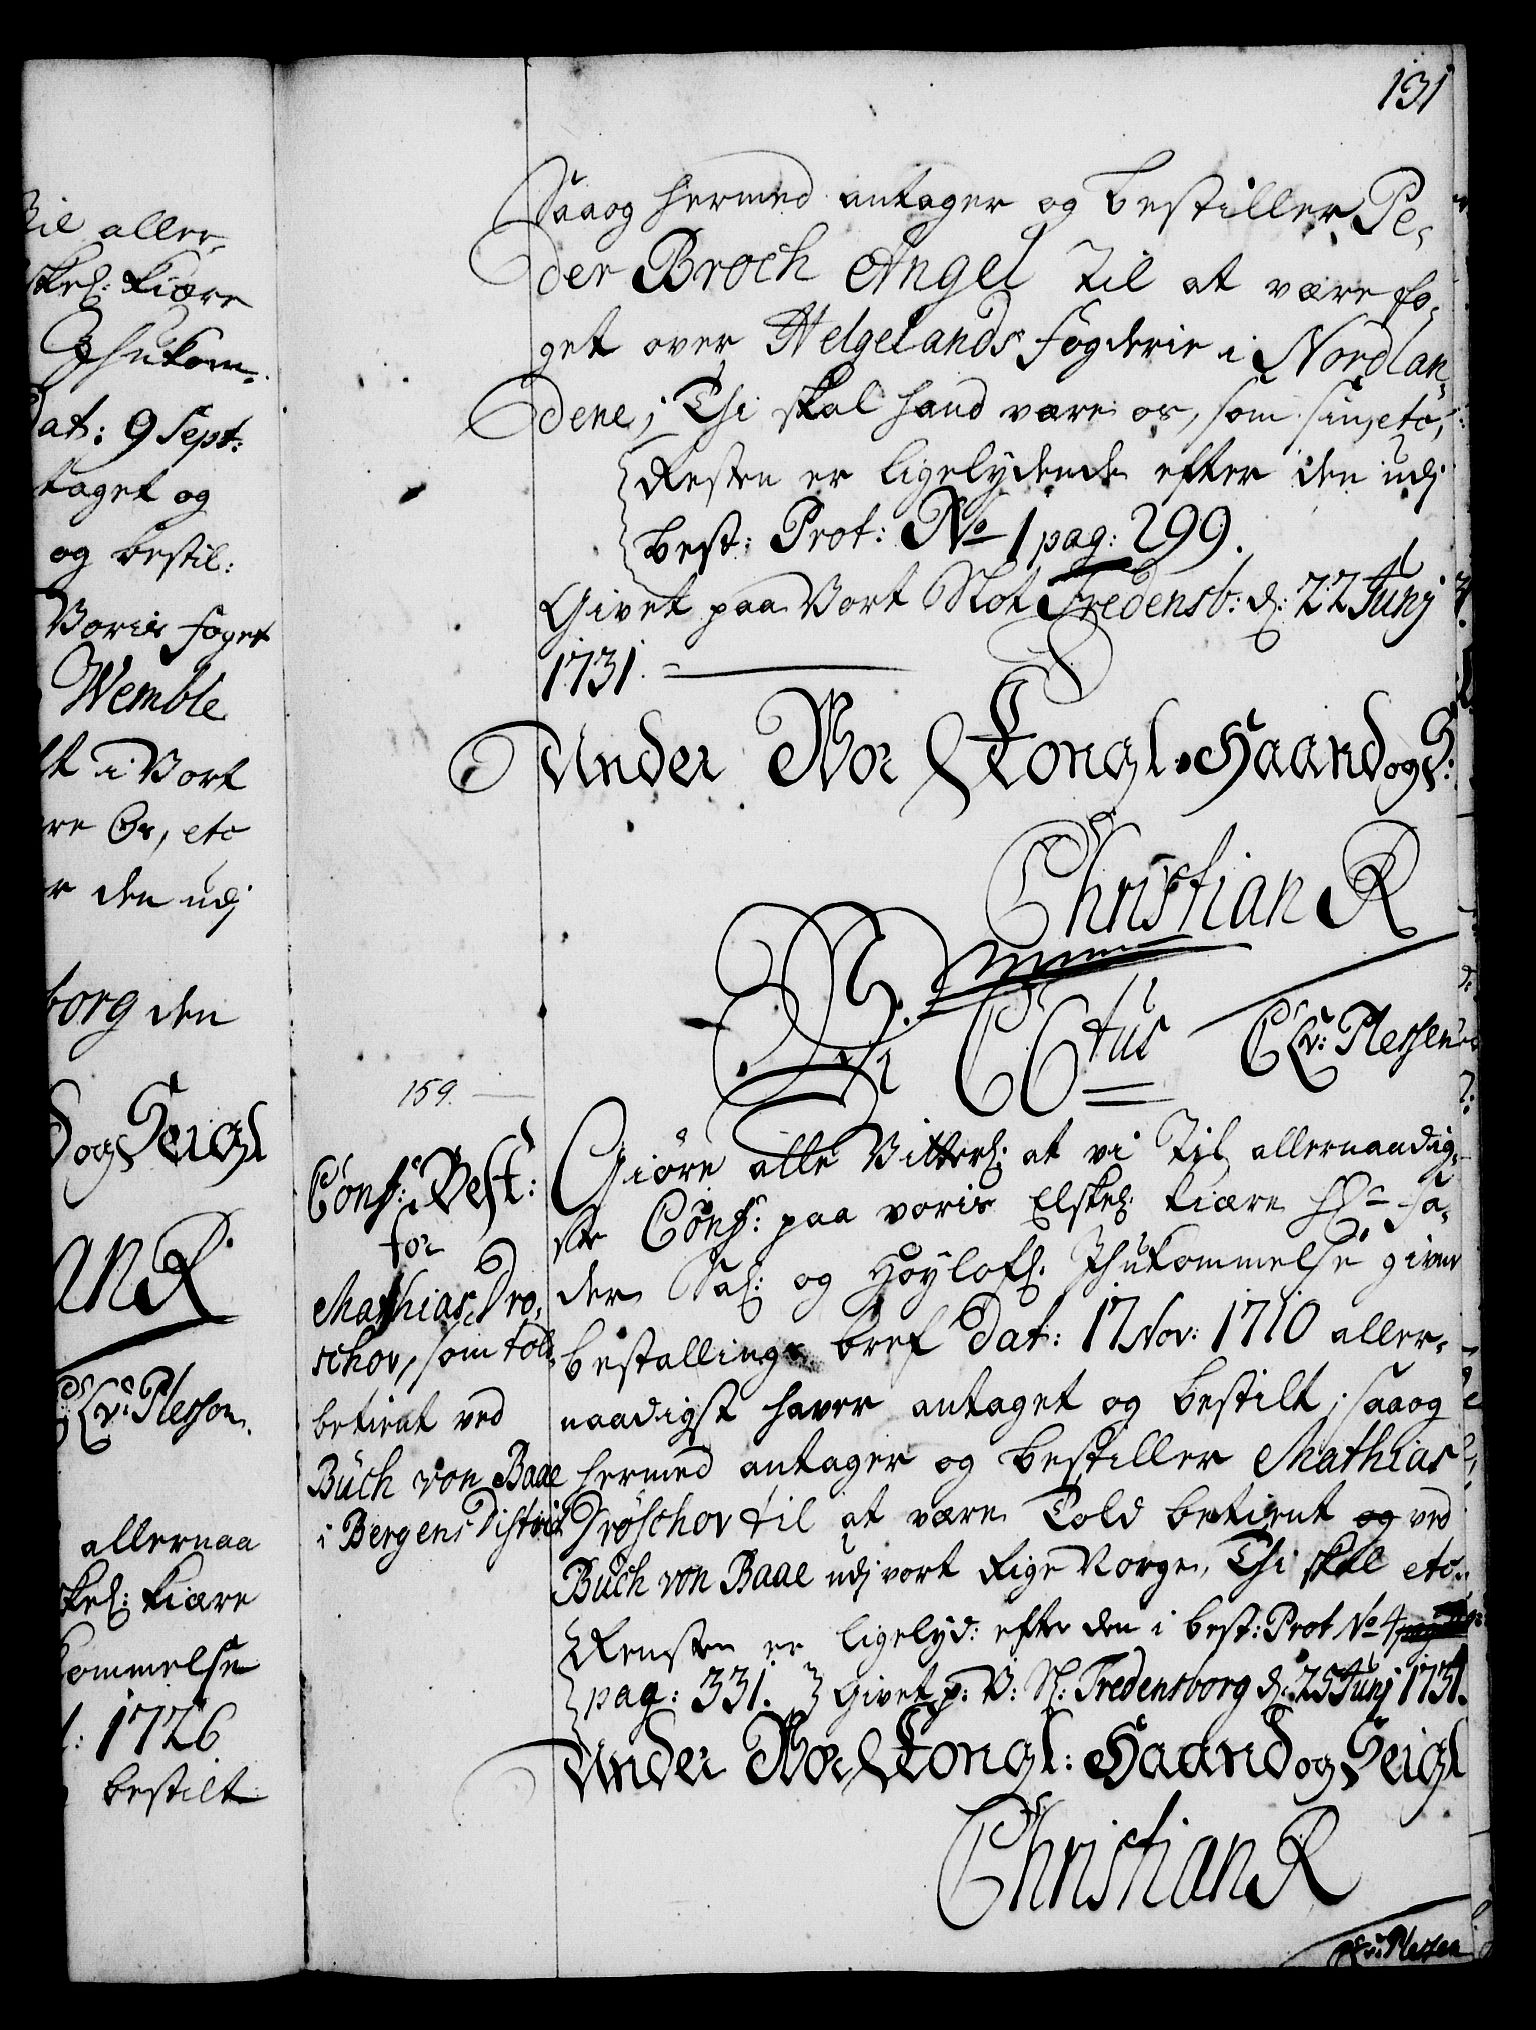 131
Saaog hermed antager og bestiller Pe-
der Broch Angel til at være fo-
get over Helgelands fogderie i Nordlan-
dene; Thi skal hand være os, som sin, etc,
Resten er ligelydende efter den udj
best: Prot: No 1 pag: 299.
Givet paa Vort Slot Fredensb: d: 22 Junj
1731.
Under Vor Kongl. Haand og S:
Christian R
CCtus C Lv: Plessen
159.
Conf: Best:
for
Mathias Drö-
schov, som told-
betient ved
Buch von Baae
i Bergens District
Giöre alle Vitterl: at vi til allernaadig-
ste Conf: paa voris Elskel: kiære Hr Fa-
der Sal: og Höylofl. Ihukommelse given
bestallings bref dat: 17 Nov: 1710 aller-
naadigst haver antaget og bestilt; saaog
hermed antager og bestiller Mathias
Dröschov til at være Told betient og ved
Buch von Baae udj vort Rige Norge, Thi skal etc.
Rensten er ligelyd: efter den i best: Prot No 4
pag: 331. Givet p: V: Sl: Fredensborg d: 25 Junj 1731.
Under Vor Kongl: Haand og Seigl
Christian R
C Lv: Plessen
til aller-
skel: kiære
Ihukom-
dat: 9 Sept:
taget og
og bestil:
Voris foget
Wemble
i Vort
re Os, etc
r den udj
borg den
d og Seigl
an R.
C Lv: Plessen.
allernaa
skel: kiære
kommelse
: 1726
bestilt